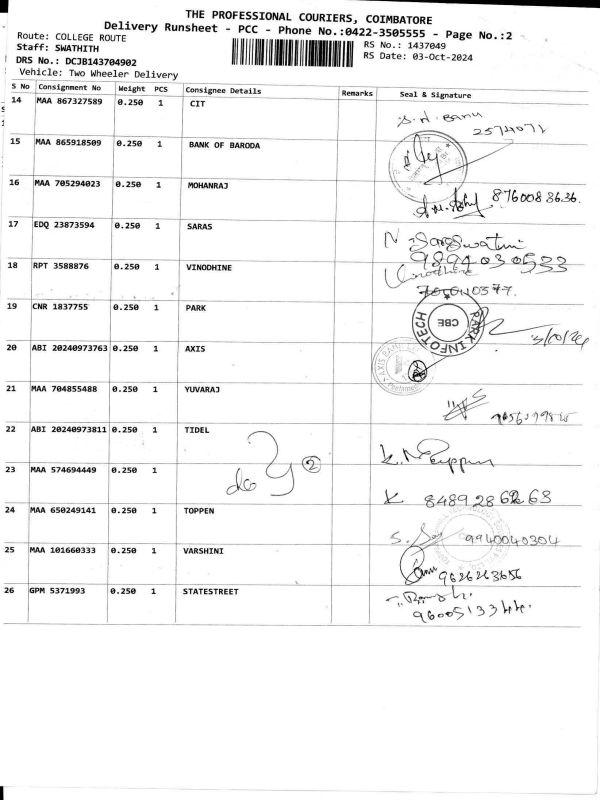 THE PROFESSIONAL COURIERS, COIMBATORE
Delivery Runsheet - PCC - Phone No.:0422-3505555 - Page No.:2
Route: COLLEGE ROUTE
RS No.: 1437049
Staff: SWATHITH
RS Date: 03-Oct-2024
DRS No.: DCJB143704902
Vehicle: Two Wheeler Delivery
S No Consignment No Weight PCS Consignee Details Remarks Seal & Signature
14 MAA 867327589 0.250 1 CIT
S.N. Banu
2574071
15 MAA 865918509 0.250 1 BANK OF BARODA
16 MAA 705294023 0.250 1 MOHANRAJ
8760088636.
17 EDQ 23873594 0.250 1 SARAS
N. Saraswathi
9894030533
18 RPT 3588876 0.250 1 VINODHINE
Vinodhine
19 CNR 1837755 0.250 1 PARK
PARK INFOTECH CBE
3/10/24
20 ABI 20240973763 0.250 1 AXIS
AXIS BANK
21 MAA 704855488 0.250 1 YUVARAJ
22 ABI 20240973811 0.250 1 TIDEL
do 2
23 MAA 574694449 0.250 1
24 MAA 650249141 0.250 1 TOPPEN
9940040304
25 MAA 101660333 0.250 1 VARSHINI
9626263656
26 GPM 5371993 0.250 1 STATESTREET
9600513344.